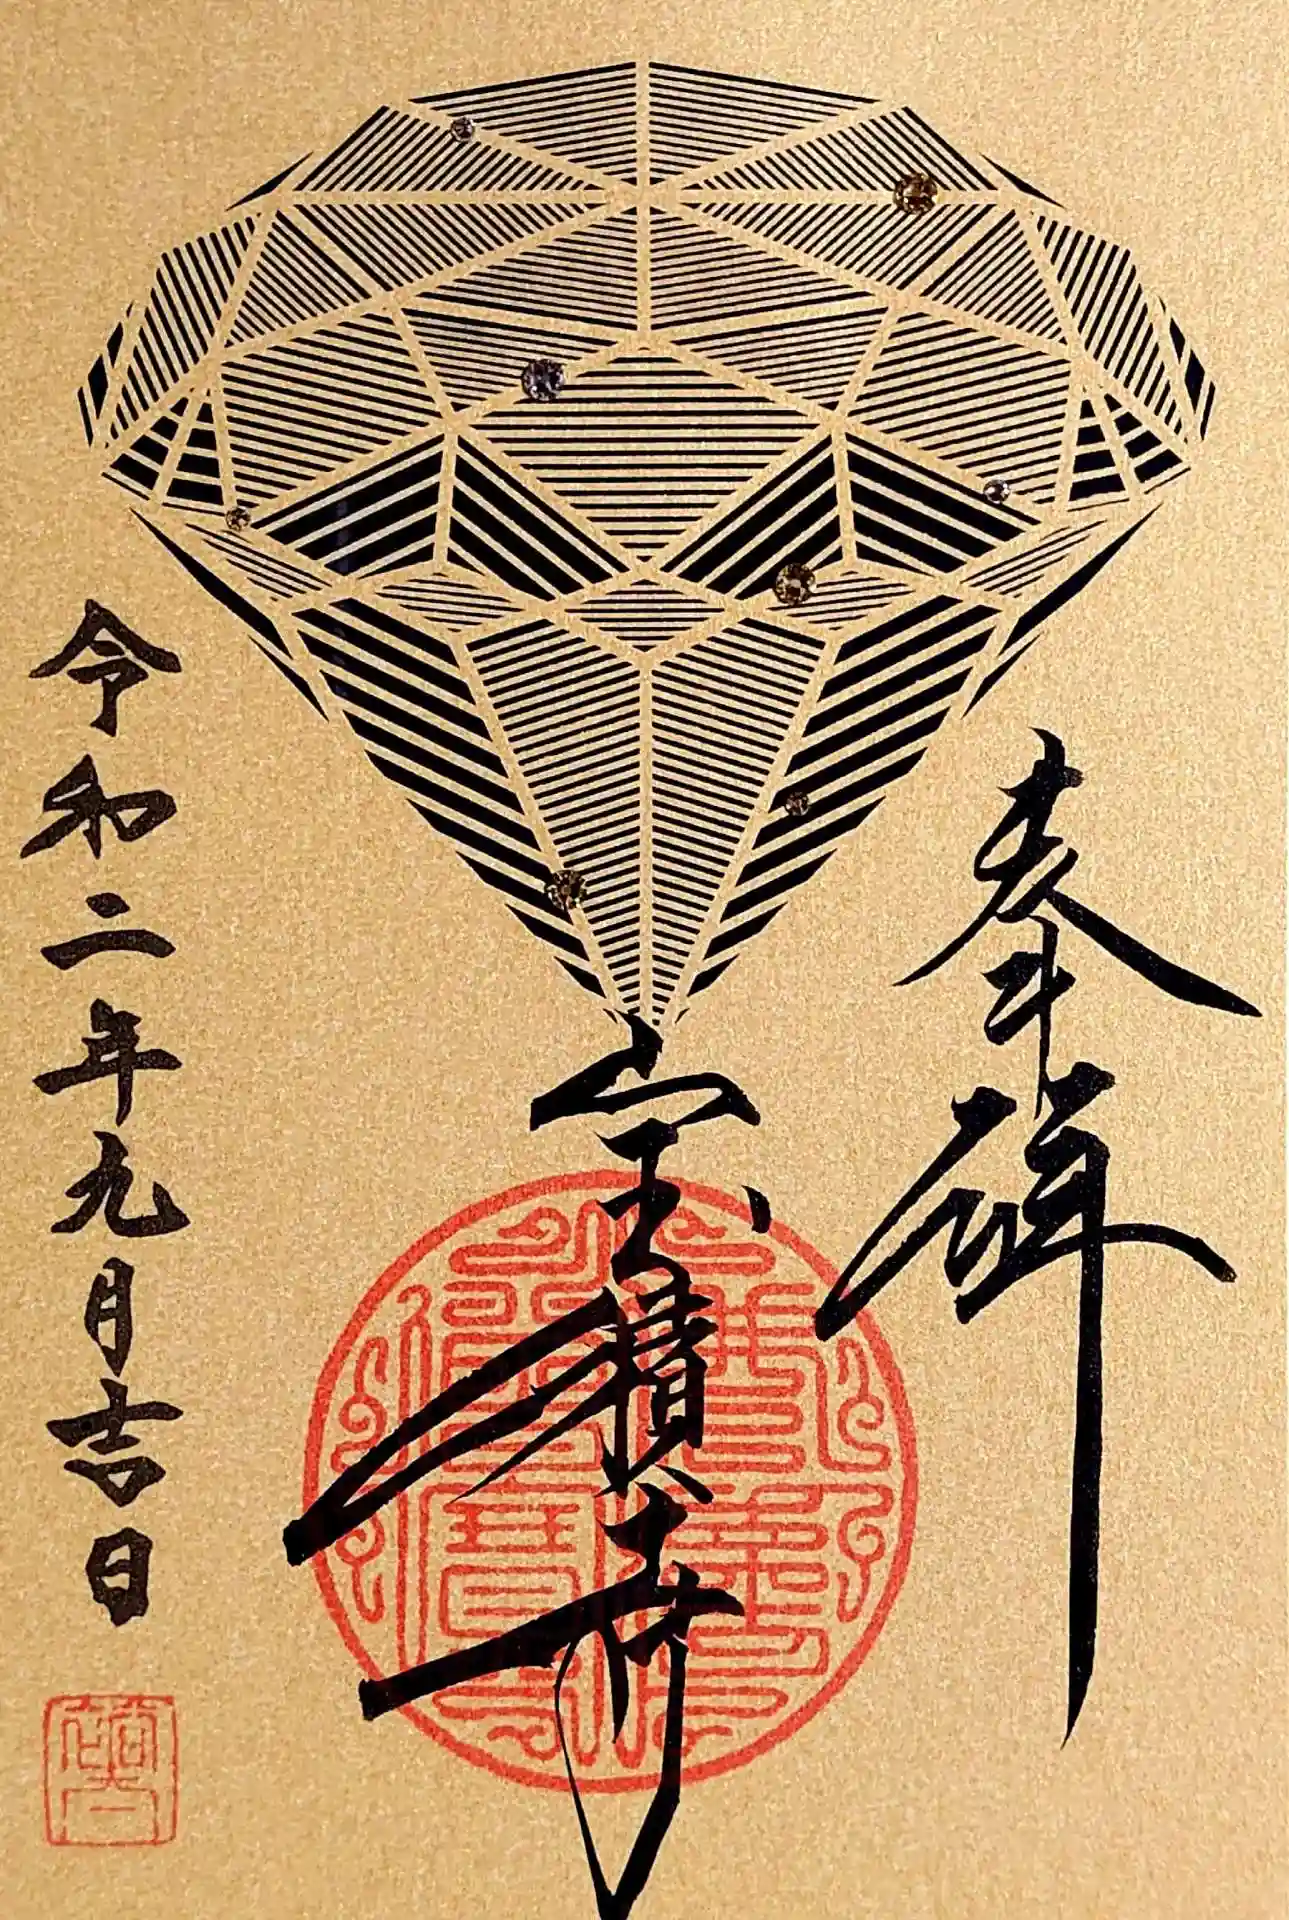 奉拝
宝積寺
令和二年九月吉日